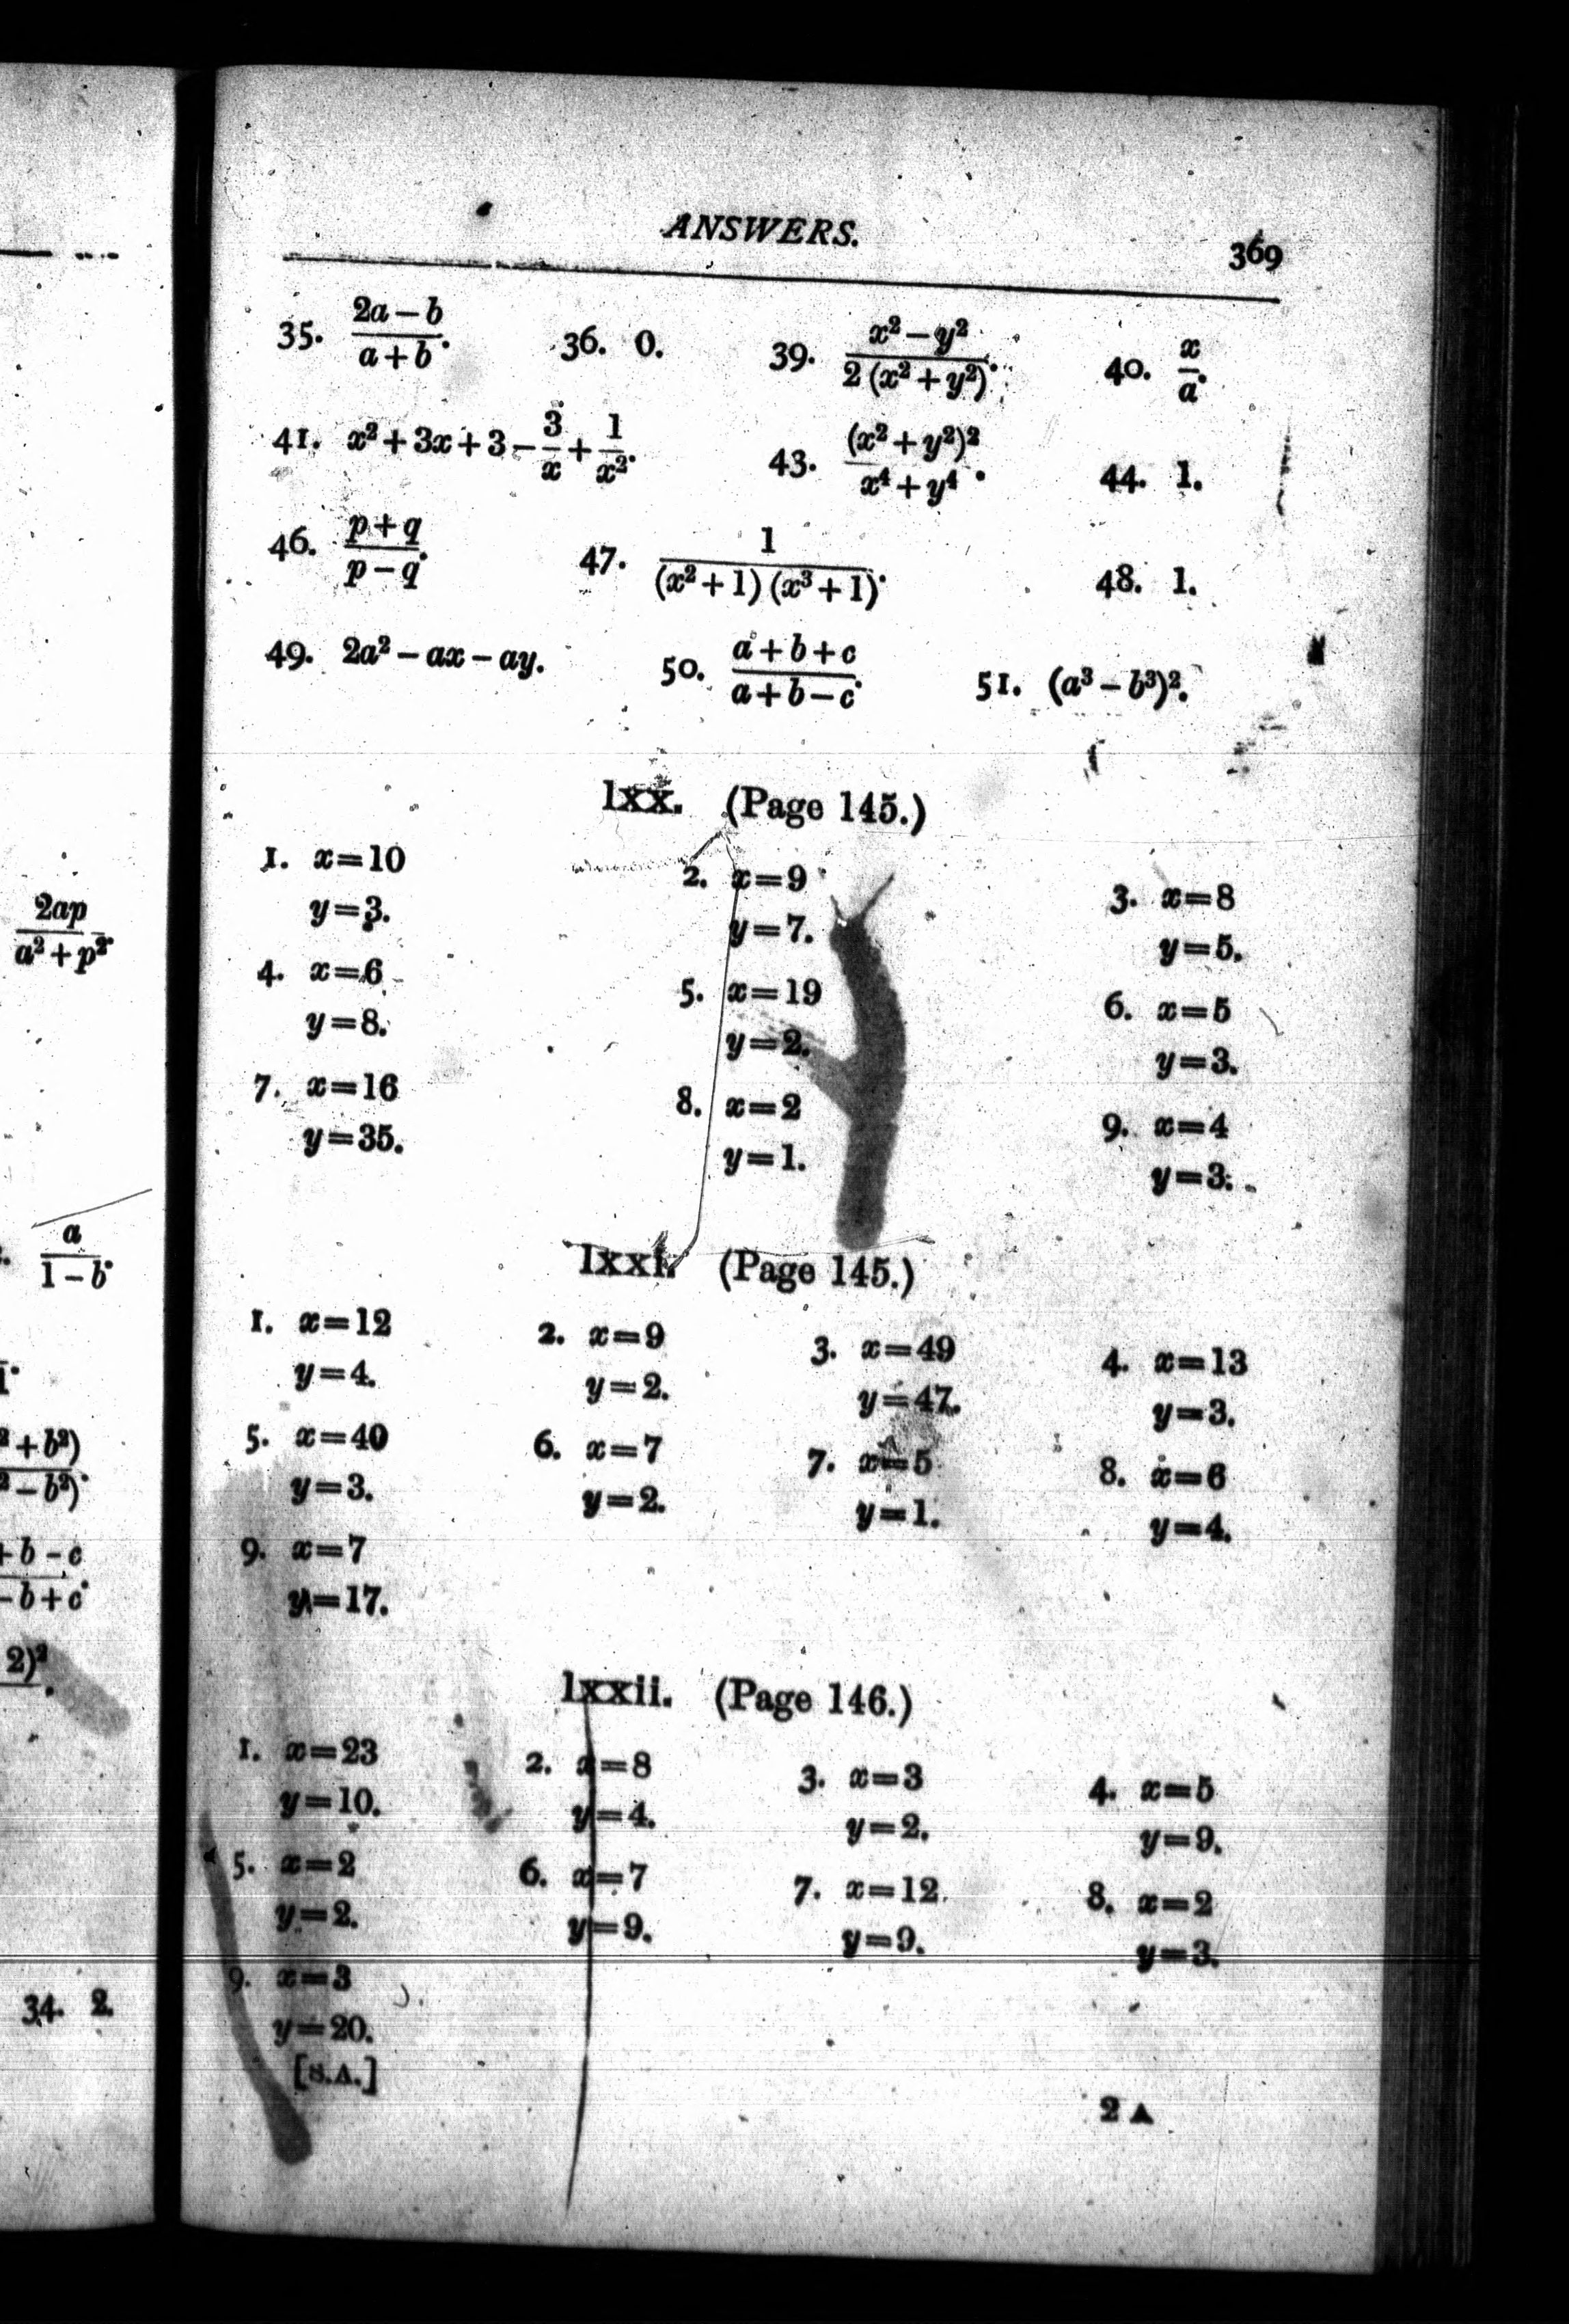 2ap
a² + p².
a
1 – b.
² + b²)
² – b²).
+ b – c
– b + c.
2)²
34. 2.
ANSWERS. 369
35. (2a – b)/(a + b). 36. 0. 39. (x² – y²)/(2 (x² + y²)). 40. x/a.
41. x² + 3x + 3 – 3/x + 1/x². 43. (x² + y²)²/(x⁴ + y⁴). 44. 1.
46. (p + q)/(p – q). 47. 1/((x² + 1) (x³ + 1)). 48. 1.
49. 2a² – ax – ay. 50. (a + b + c)/(a + b – c). 51. (a³ – b³)².
lxx. (Page 145.)
1. x=10 2. x=9 3. x=8
y=3. y=7. y=5.
4. x=6 5. x=19 6. x=5
y=8. y=2. y=3.
7. x=16 8. x=2 9. x=4
y=35. y=1. y=3.
lxxi. (Page 145.)
1. x=12 2. x=9 3. x=49 4. x=13
y=4. y=2. y=47. y=3.
5. x=40 6. x=7 7. x=5 8. x=6
y=3. y=2. y=1. y=4.
9. x=7
y=17.
lxxii. (Page 146.)
1. x=23 2. x=8 3. x=3 4. x=5
y=10. y=4. y=2. y=9.
5. x=2 6. x=7 7. x=12 8. x=2
y=2. y=9. y=9. y=3.
9. x=3
y=20.
[S.A.] 2 A